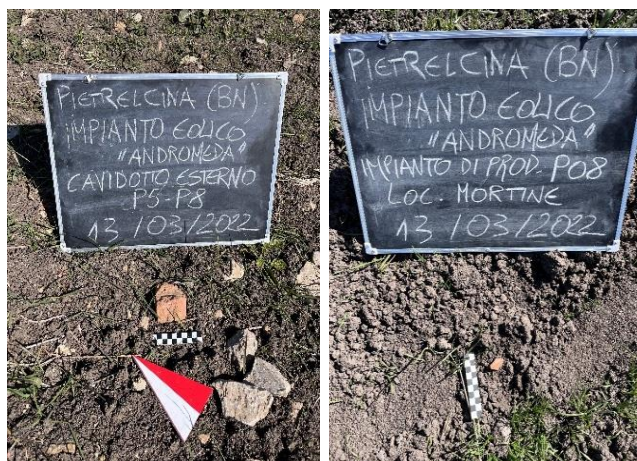 PIETRELCINA (BN)
IMPIANTO EOLICO
"ANDROMEDA"
CAVIDOTTO ESTERNO
P5-P8
13/03/2022
PIETRELCINA (BN)
IMPIANTO EOLICO
"ANDROMEDA"
IMPIANTO DI PROD. P08
LOC. MORTINE
13/03/2022